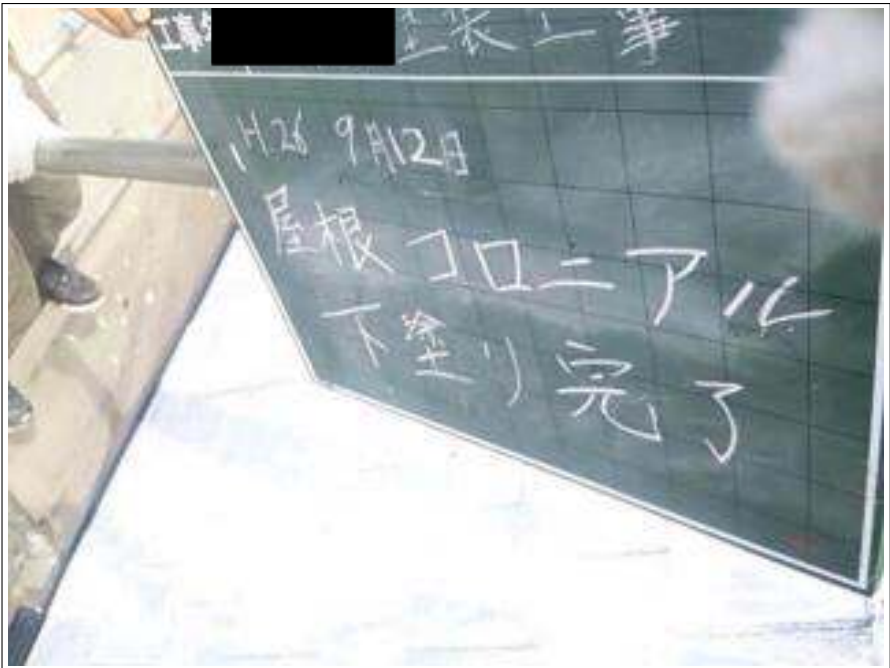 工事名 塗装工事
H.26 9月12日
屋根コロニアル
下塗り完了